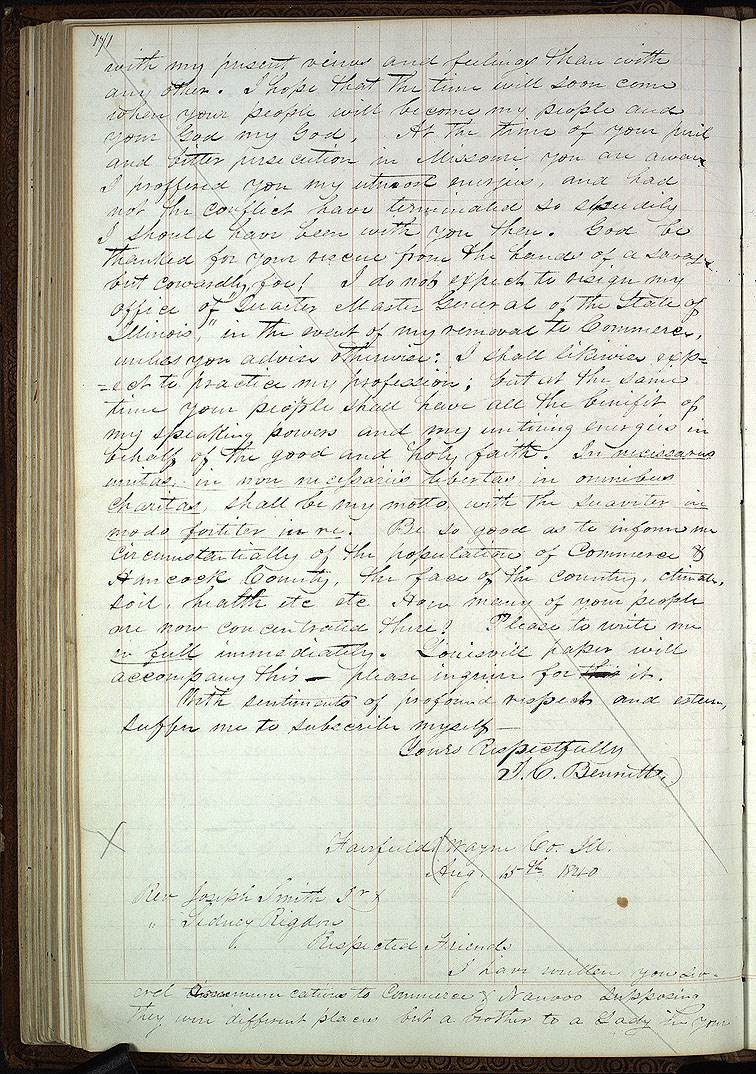 171
with my present views and feelings than with
any other. I hope that the time will soon come
when your people will become my people and
your God my God. At the time of your peril
and bitter persecution in Missouri you are aware
I proffered you my utmost energies, and had
not the conflict have terminated so speedily
I should have been with you then. God be
thanked for your rescue from the hands of a savage
but cowardly foe! I do not expect to resign my
office of "Quarter Master General of the State of
Illinois," in the event of my removal to Commerce,
unless you advise otherwise: I shall likewise exp=
=ect to practice my profession; but at the same
time your people shall have all the benifit of
my speaking powers and my untiring energies in
behalf of the good and holy faith. In necessarus
unitas, in non necessariis libertas, in omnibus
charitas, shall be my motto, with the suaviter in
modo fortiter in re. Be so good as to inform me
circumstantially of the population of Commerce &
Hancock County, the face of the country, climate,
soil, health etc etc How many of your people
are now concentrated there? Please to write me
in full immediately. Louisvill paper will
accompany this — please inquire for this it.
With sentiments of profound respect and esteem,
suffer me to subscribe myself —
Yours Respectfully
J. C. Bennett.
Fairfield Wayne Co. Ill.
Aug. 15th 1840
Rev Joseph Smith Jr &
" Sidney Rigdon
Respected Friends
I have written you sev-
eral communications to Commerce & Nauvoo supposing
they were different places but a brother to a Lady in your